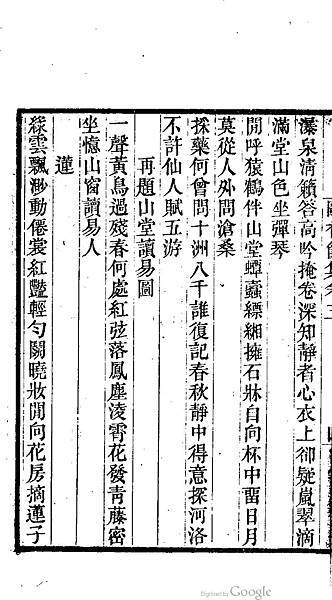 瀑泉清籟答高吟掩卷深知靜者心衣上卻疑嵐翠滴
滿堂山色坐彈琴
閒呼猿鶴伴山堂蟫蠹縹緗擁石牀自向杯中畱日月
莫從人外問滄桑
採藥何曾問十洲八千誰復記春秋靜中得意探河洛
不許仙人賦五游
再題山堂讀易圖
一聲黃鳥過殘春何處紅弦落鳳塵淩霄花發靑藤密
坐憶山窗讀易人
蓮
綠雲飄渺動僊裳紅豔輕勻關曉妝閒向花房摘蓮子
Digitized by Google